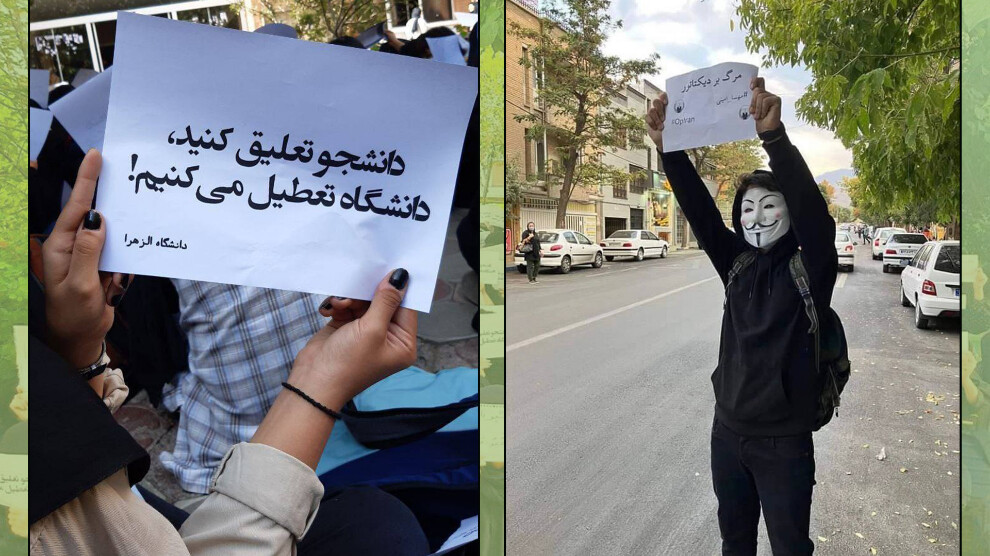 دانشجو تعلیق کنید،
دانشگاه تعطیل می‌کنیم!
دانشگاه الزهرا
مرگ بر دیکتاتور
#مهسا_امینی
#OpIran